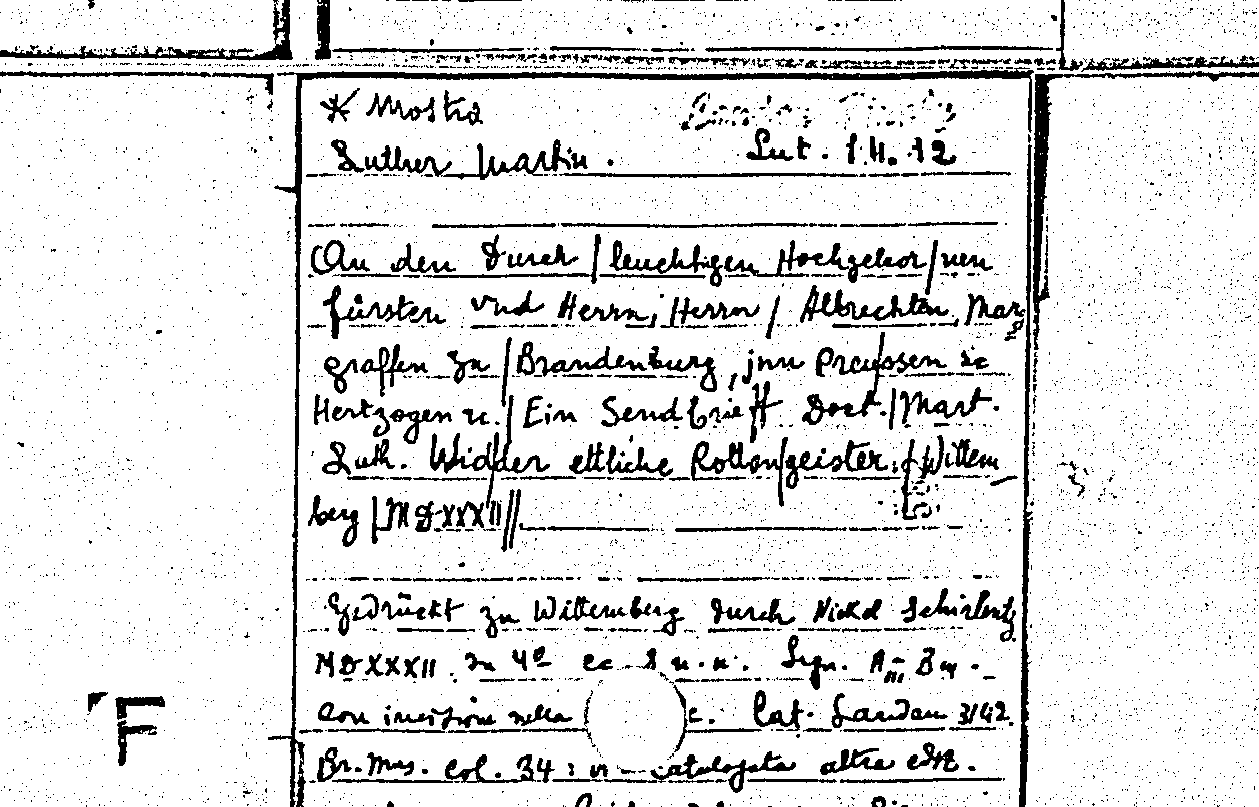 * Mostra
Luther Martin. Lut. 1H. 12
An den Durch / leuchtigen Hochgebor / nen
fürsten vnd Herrn, Herrn / Albrechten, Marg
graffen zu / Brandenburg, jnn Preussen zc
Hertzogen zc. / Ein Sendbrieff Doct. / Mart.
Luth. Widder ettliche Rotten/geister. / Wittem
berg / MDXXXII //.
Gedrückt zu Wittemberg durch Nickel Schirlentz
MDXXXII. in 4º cc. 8 n.n. Sign. Aiii
con incisione nella c. Cat. Landau 3/42.
Br. Mus. col. 34: catalogata altra ediz.
F